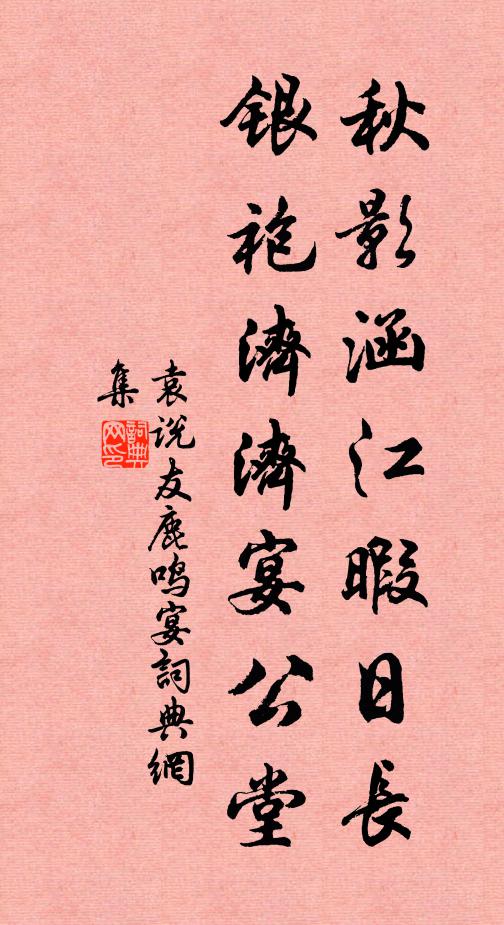 秋影涵江暇日長
銀袍濟濟宴公堂
袁说友鹿鸣宴詞典網
集
詞典网印